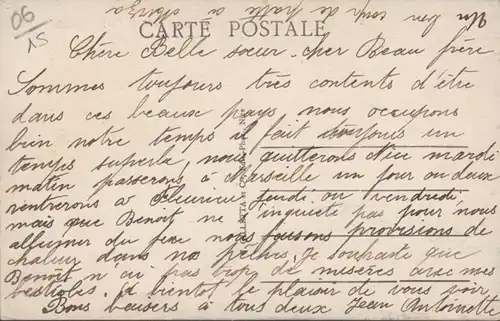 06
15
Un bon coup de patte a
CARTE POSTALE
Chère Belle sœur - cher Beau frère
Sommes toujours très contents d'être
dans ces beaux pays nous occupons
bien notre temps il fait toujours un
temps superbe, nous quitterons Nice mardi
matin passerons à Marseille un jour ou deux
rentrerons a Fleurieu jeudi ou vendredi
mais que Benoit ne s'inquiete pas pour nous
allumer du feu nous faisons provisions de
chaleur dans nos Je souhaite que
Benoit n ai pas trop de misères avec mes
bestioles. A bientot le plaisir de vous voir
Bons baisers à tous deux Jean Antoinette